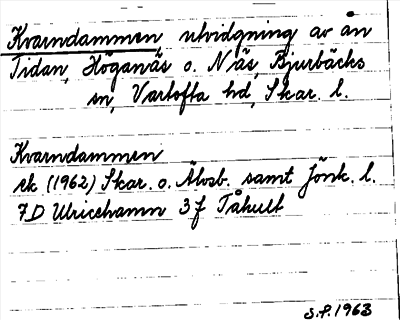 Kvarndammen, utvidgning av ån
Tidan, Höganäs o. Näs, Bjurbäcks
sn, Vartofta hd, Skar. l.
Kvarndammen
ek (1962) Skar. o. Älvsb. samt Jönk. l.
7D Ulricehamn 3 j Tåhult
S.P. 1963